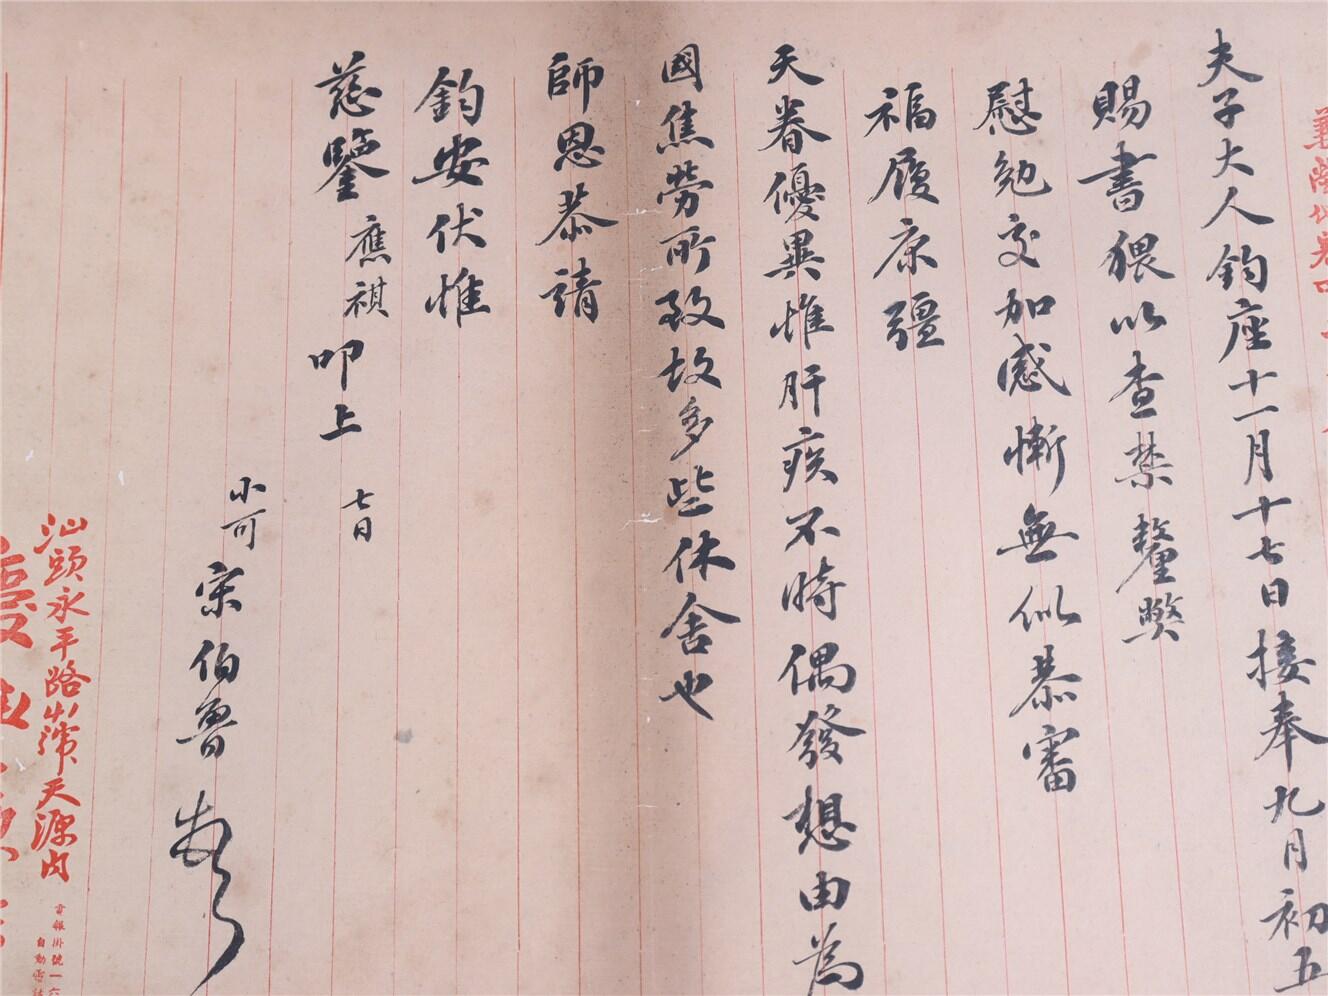 夫子大人鈞座十一月十七日接奉九月初五
賜書猥以查禁釐獘
慰勉交加感慚無似恭審
福履康彊
天眷優異惟肝疾不時偶發想由為
國焦勞所致故多些休舍也
師恩恭請
鈞安伏惟
慈鑒應祺叩上
七日
小可宋伯魯
汕頭永平路
天源內
電報掛號一六
自動電話